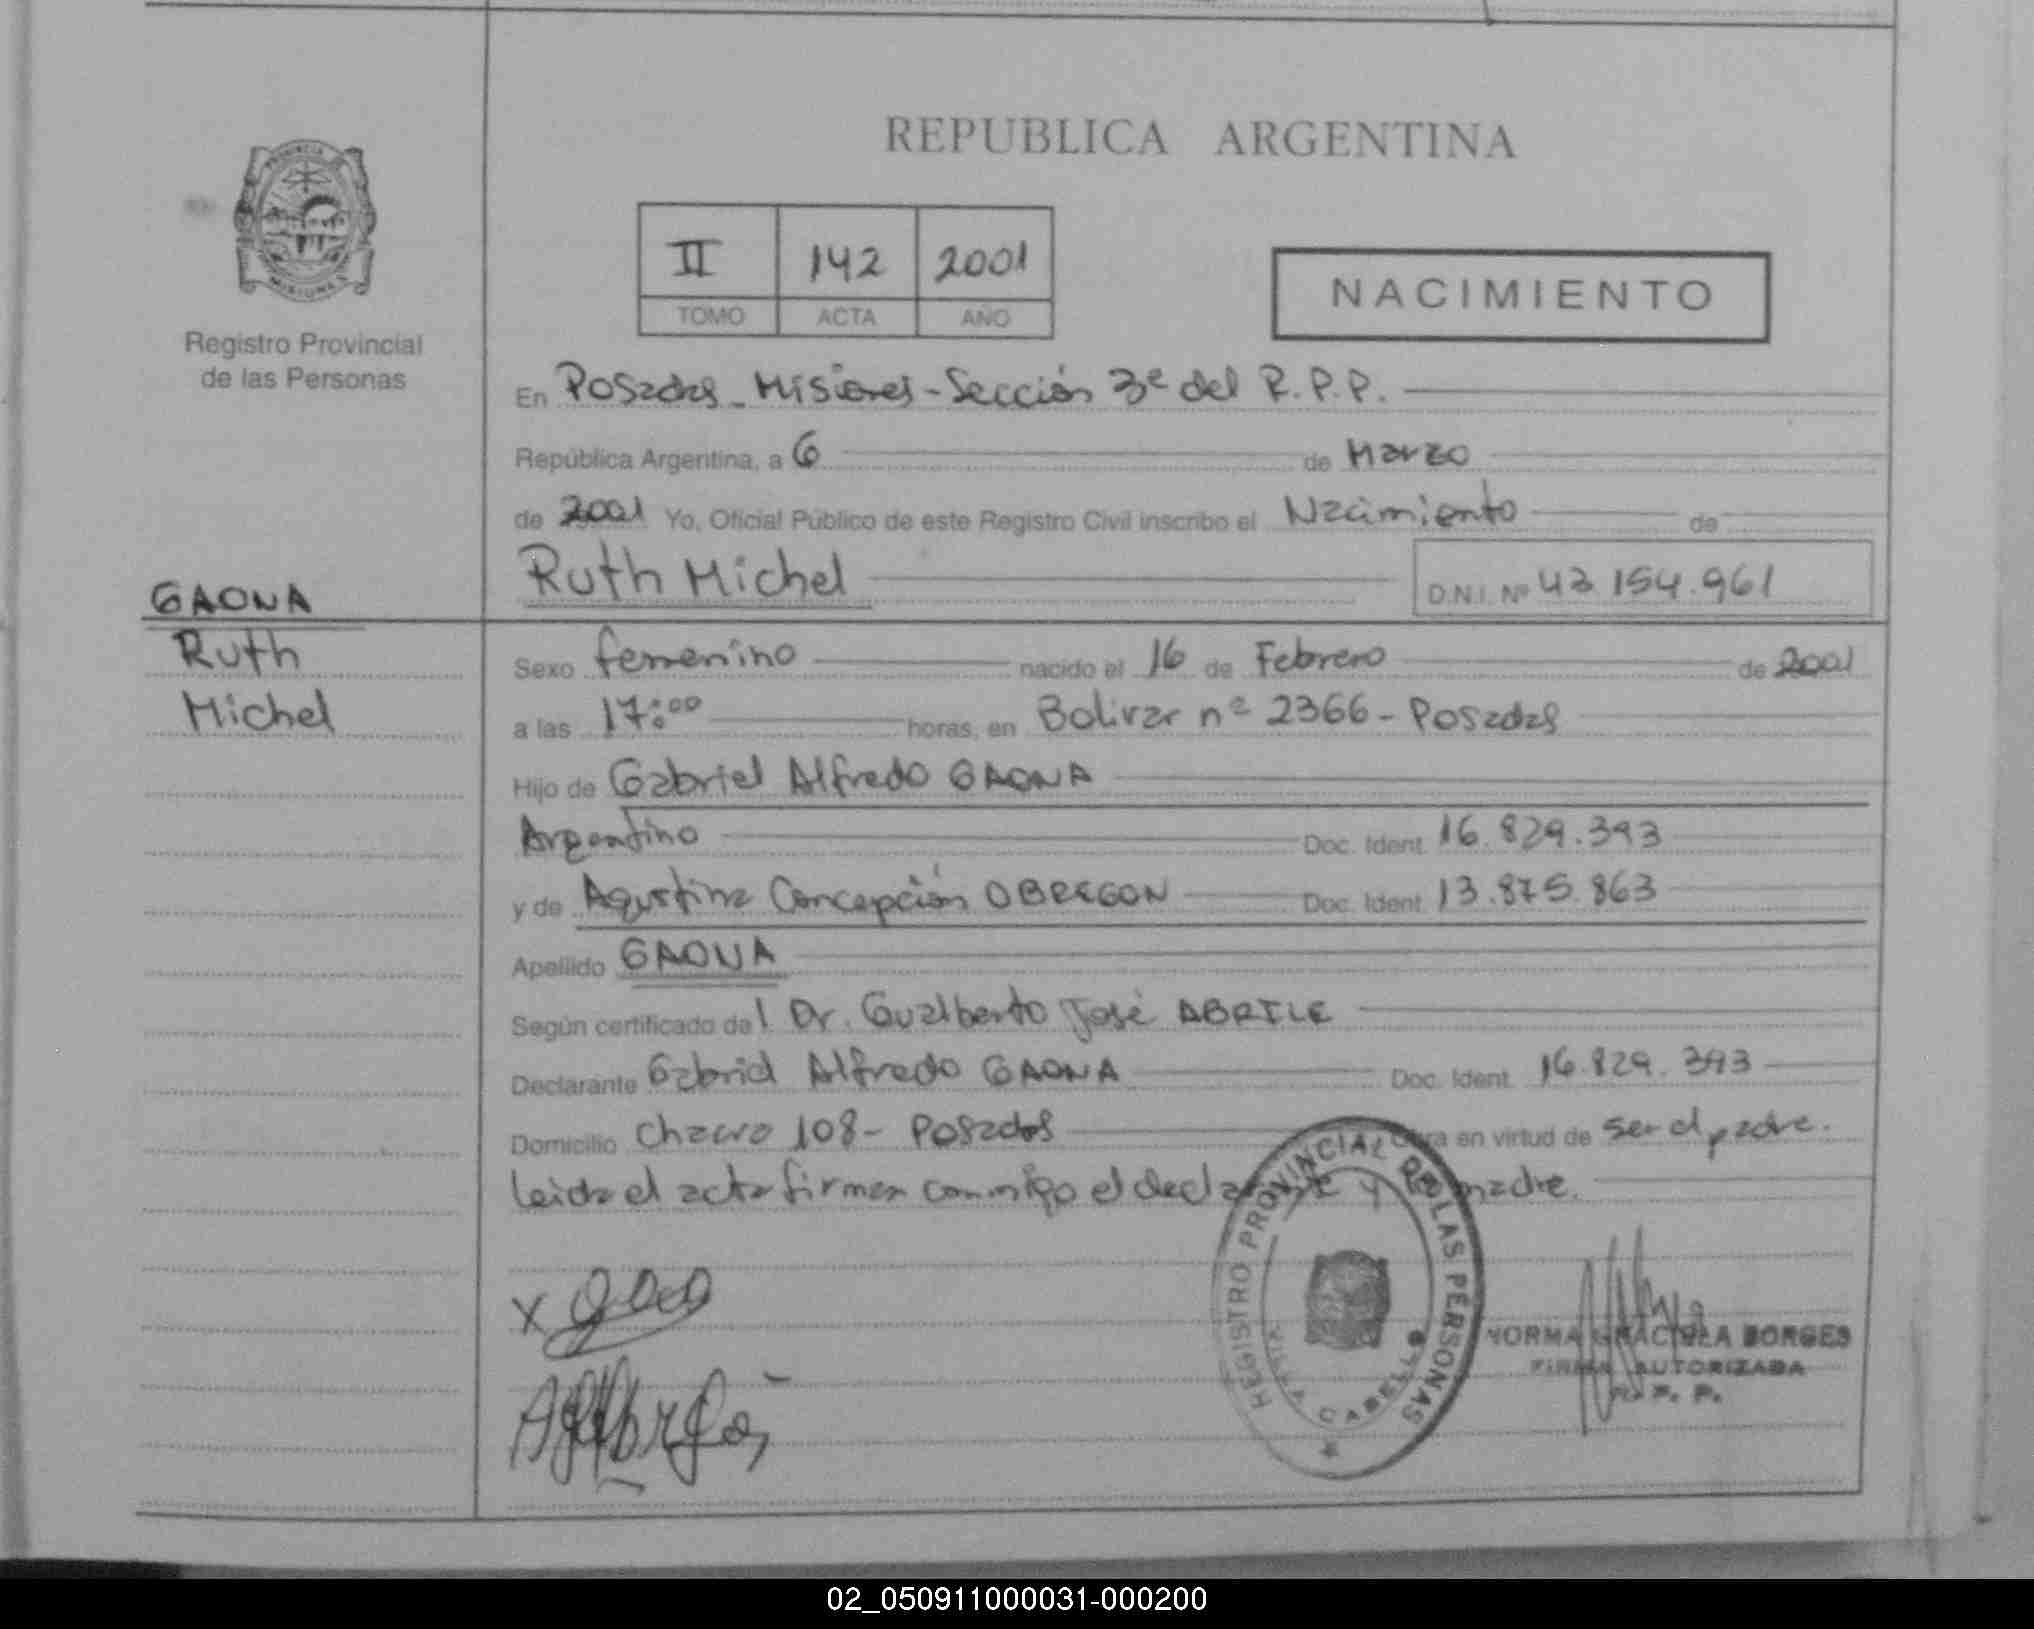 REPUBLICA ARGENTINA
PROVINCIA DE
MISIONES
Registro Provincial
de las Personas
II 142 2001
TOMO ACTA AÑO
NACIMIENTO
En Posadas - Misiones - Sección 3ª del R.P.P.
República Argentina, a 6 de Marzo
de 2001 Yo, Oficial Público de este Registro Civil inscribo el Nacimiento de
GAONA
Ruth Michel D.N.I. Nº 43.154.961
Ruth
Michel
Sexo femenino nacido el 16 de Febrero de 2001
a las 17:00 horas, en Bolivar nº 2366 - Posadas
Hijo de Gabriel Alfredo GAONA
Argentino Doc. Ident. 16.829.393
y de Agustina Concepción OBREGON Doc. Ident. 13.875.863
Apellido GAONA
Según certificado del Dr. Gualberto José ABRILE
Declarante Gabriel Alfredo GAONA Doc. Ident. 16.829.393
Domicilio Chacra 108 - Posadas Obra en virtud de ser el padre.
Leida el acta firman conmigo el declarante y la madre.
X
REGISTRO PROVINCIAL DE LAS PERSONAS
VILLA CABELLO
NORMA GRACIELA BORGES
FIRMA AUTORIZADA
R. P. P.
02_050911000031-000200